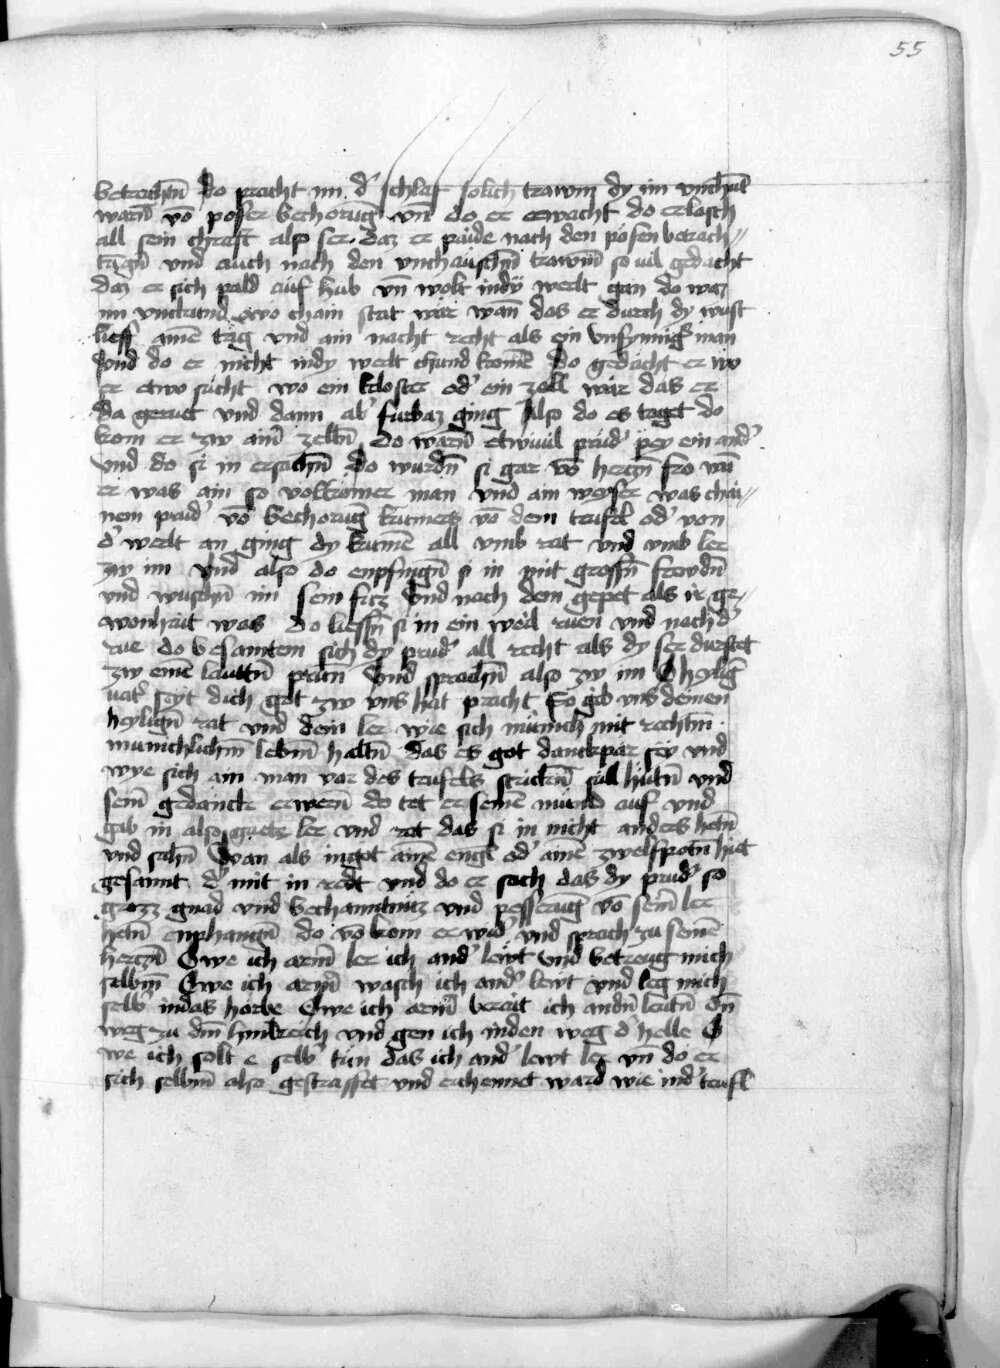 55
betrachtñ do pracht im d' schlaf solich trawm dy im vnchunt
warñ vō poser bechorūg vñ do er erwacht do erlasch
all sein chraft also ser daz er paide nach den posen betrach//
tūgñ vnd auch nach den vnchauschñ trawm̄ so uil gedacht
daz er sich pald auf hub vñ wolt indÿ werlt gan do waz
im vnchund wo chain stat wär wañ das er durch dy wust
lieff ainē täg vnd ain nacht recht als ein vnsynnig' man
Vnd do er nicht indy werlt chund komē do gedacht er wo
er etwo sücht wo ein kloster od' ein zell wär das er
da geruet vnd dann ab' furbaz ging Also do es taget do
kom er zw ainē zellñ do warñ etwiuil prüd' pey ein and'
vnd do si in ersachñ do wurdñ si gar vō herczñ fro wañ
er was ain so volkömer man vnd ain weyser was chai//
nem prud' vō bechorūg kumers vō dem teufel od' von
d' werlt an ging dy kumē all vmb rat vnd vmb ler
zw im vnd also do enpfingñ si in mit grossñ frewdñ
vnd wuschñ im sein fucz Vnd nach dem gepet als ir ge//
wonhait was do liessñ si in ein weil ruen vnd nach d'
rue do besamten sich dy prud' all recht als dy ser durstet
zw einē lauttñ prun̄ Vnd sprachñ also zw im O hylig'
uat' seyt dich got zw vns hat pracht So gib vns deinen
hyligñ rat vnd dein ler wie sich münich mit rechtm
munichlichm̄ lebm̄ haltñ das es got danckpar sey vnd
wye sich ain man vor des teufels strickñ sull hütñ vnd
sein̄ gedanck erwern̄ do tet er seinē münd auf vnd
gab in also guete ler vnd rat das si in nicht anders hetñ
vnd sahñ Wan als in got ainē engl od' ainē zwelfpotñ hiet
gesannt d' mit in redt vnd do er sach das dy prud' so
grozz gnad vnd bechanntnüz vnd pesserūg vō sein̄ ler
hetñ enphangñ do vō kom er wid' vnd sprach zu seinē
herczñ Owe ich arm̄ ler ich and' lewt vnd betreug mich
selbm̄ Owe ich arm̄ wasch ich and' lewt vnd leg mich
selb' in das horbe Owe ich arm̄ berait ich andñ leutñ dñ
weg zu dm̄ himlreich vnd gen ich in den weg d' helle O
we ich solt e selb' tün das ich and' lewt ler vñ do er
sich selbm̄ also gestraffet vnd erchennet ward wie in d' teufl